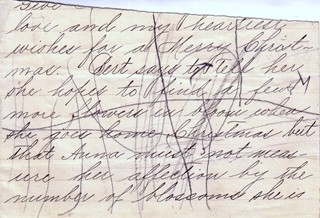 Give
love and my heartiest
wishes for a Merry Christ-
mas. Bert says to tell her
she hopes to find a few
more flowers in bloom when
she goes home Christmas but
that Anna must not meas
ure her affection by the
number of blossoms she is